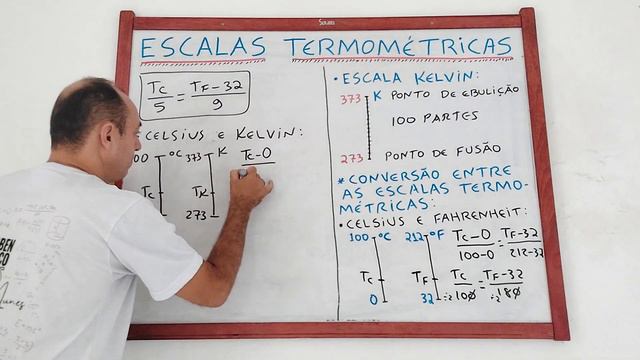 Souza
ESCALAS TERMOMÉTRICAS
TC/5 = TF-32/9
CELSIUS E KELVIN:
00 °C 373 K TC-0
TC TK
273
• ESCALA KELVIN:
373 K PONTO DE EBULIÇÃO
100 PARTES
273 PONTO DE FUSÃO
* CONVERSÃO ENTRE
AS ESCALAS TERMO-
MÉTRICAS:
• CELSIUS E FAHRENHEIT:
100 °C 212 °F TC-0/100-0 = TF-32/212-32
TC TF TC/100 = TF-32/180
0 32 ÷2 ÷2
BEN
ÇO
Nunes